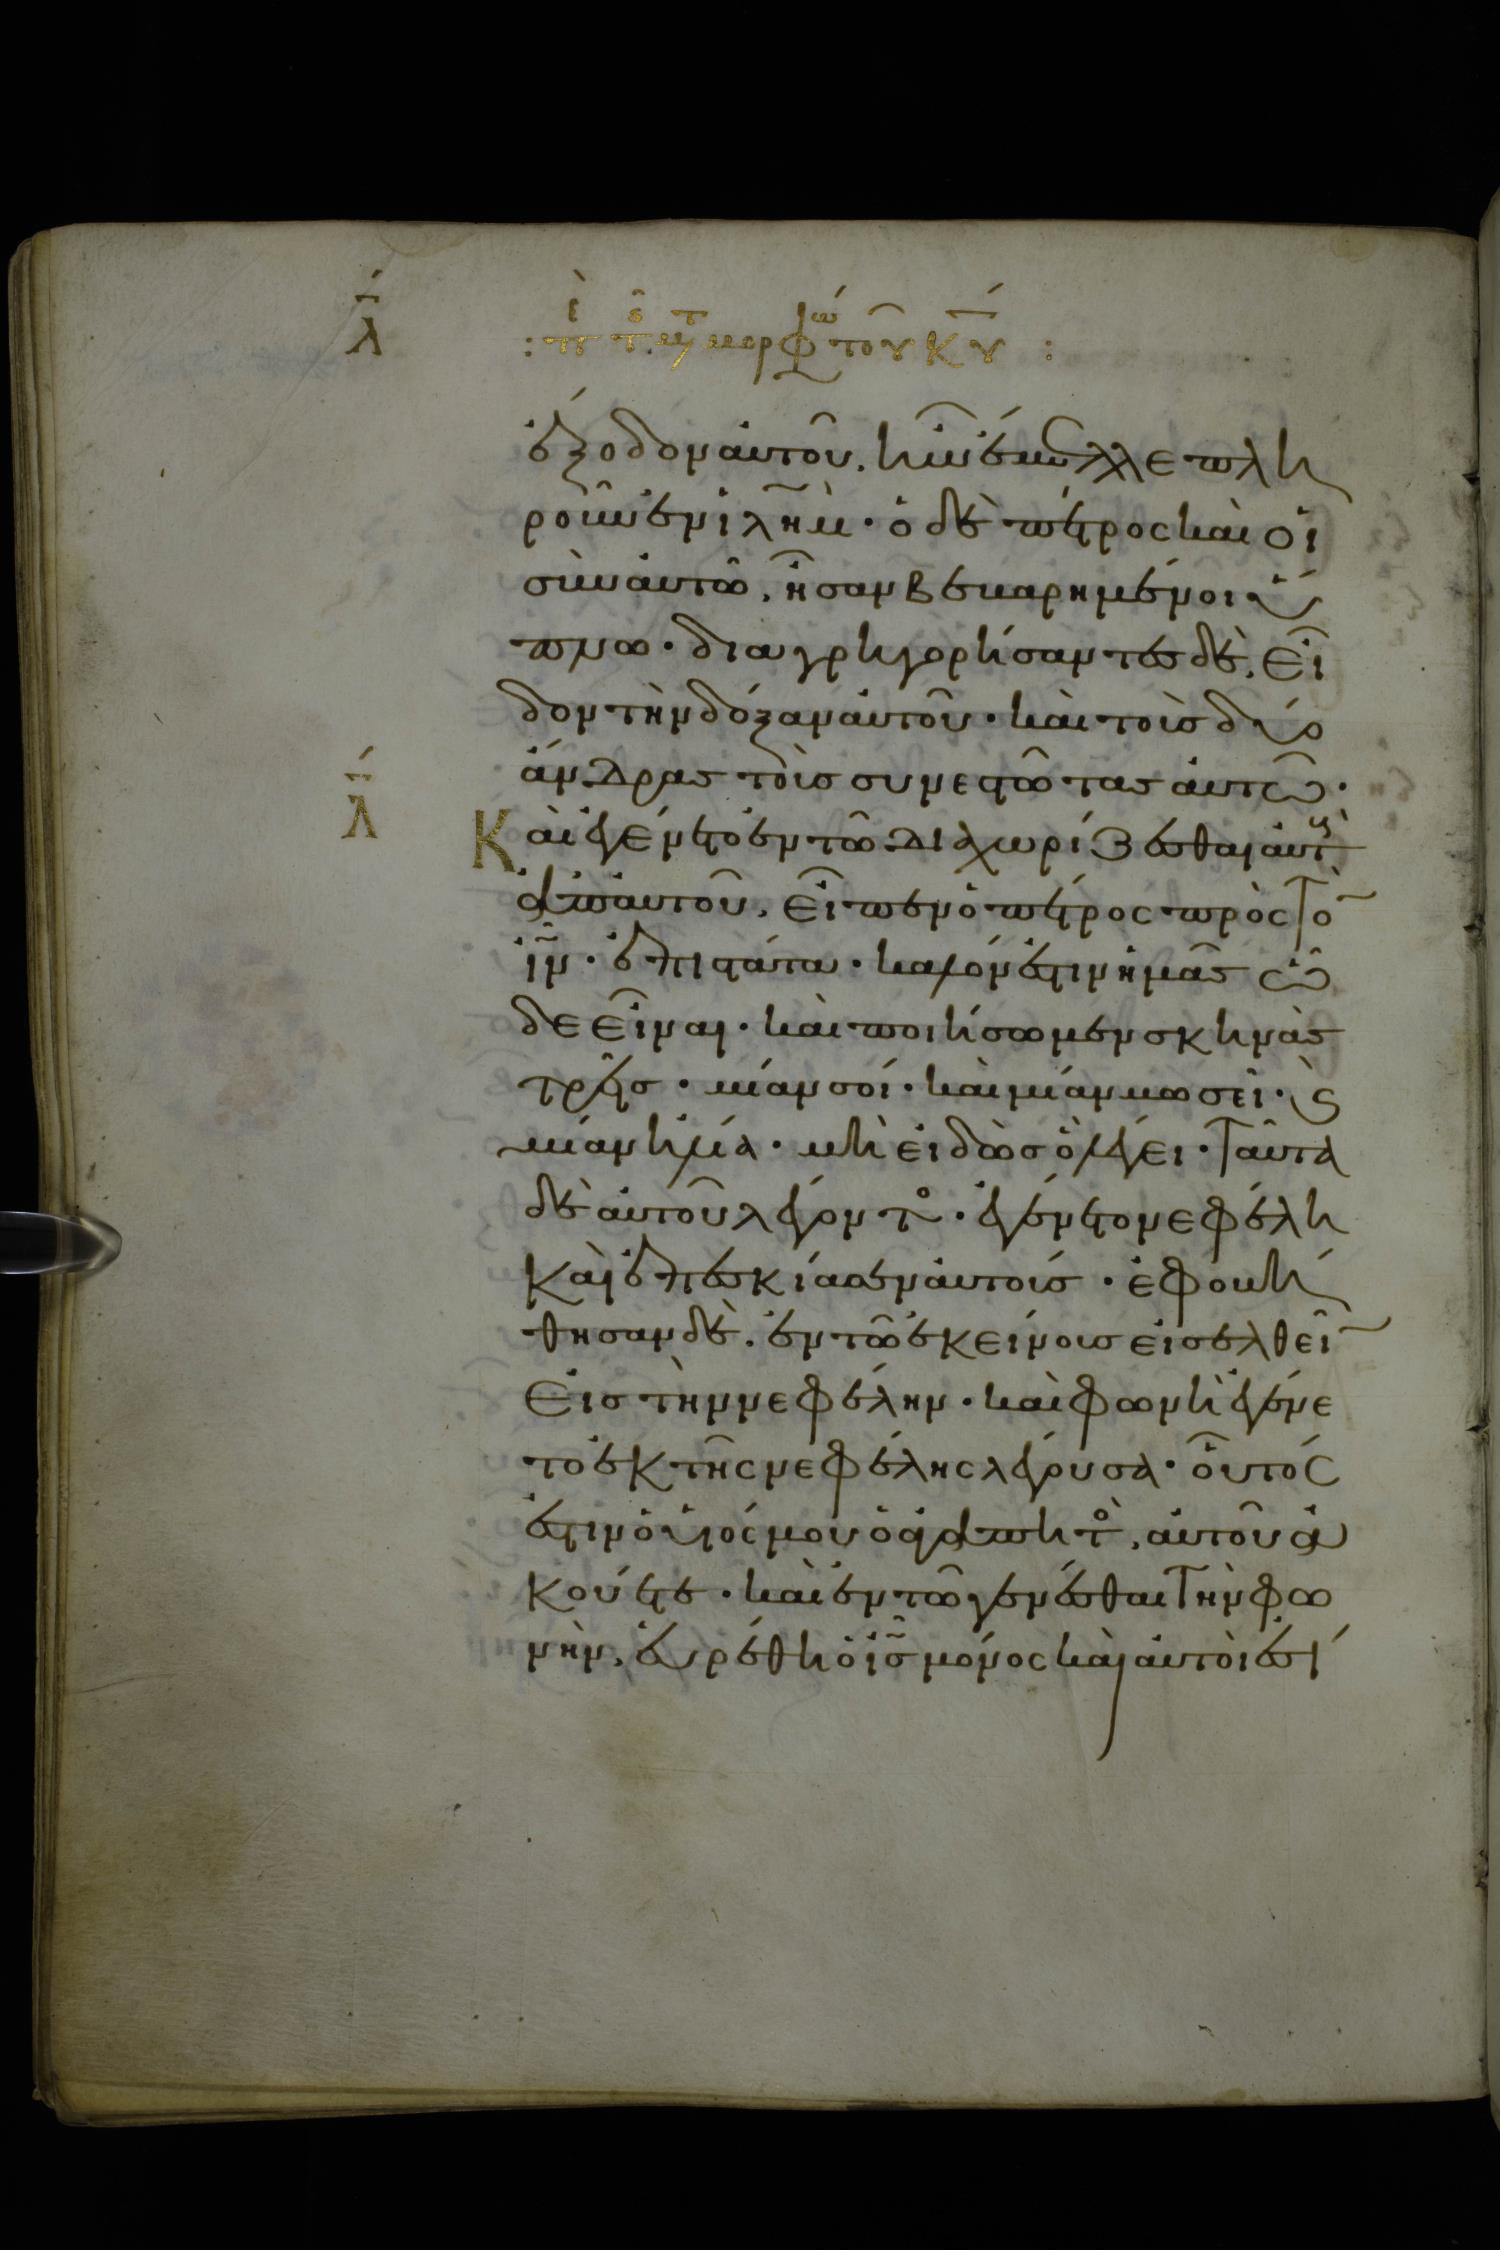 λ
: πὶ τ μετ μορφώ τοῦ κυ :
ἔξοδον αὐτοῦ, ἣν ἔμελλε πλη
ροῦν ἐν ἱλημ· ὁ δὲ πέτρος καὶ οἱ
σὺν αὐτῶ, ἦσαν βεβαρημένοι ὕ
πνω· διαγρηγορήσαντες δὲ, εἶ
δον τὴν δόξαν αὐτοῦ· καὶ τοὺς δύο
ἄνδρας τοὺς συνεστῶτας αὐτῶ·
λ
Καὶ ἐγένετο ἐν τῶ διαχωρίζεσθαι αὐτοὺς
ἀπ' αὐτοῦ, εἶπεν ὁ πέτρος πρὸς τὸν
ἰν· ἐπιστάτα· καλόν ἐστιν ἡμᾶς ὧ
δε εἶναι· καὶ ποιήσωμεν σκηνὰς
τρεῖς· μίαν σοί· καὶ μίαν μωσεῖ· ϗ
μίαν ἡλία· μὴ εἰδὼς ὃ λέγει· ταῦτα
δὲ αὐτοῦ λέγοντος· ἐγένετο νεφέλη
καὶ ἐπεσκίασεν αὐτούς· ἐφοβή
θησαν δὲ, ἐν τῶ ἐκείνους εἰσελθεῖν
εἰς τὴν νεφέλην· καὶ φωνὴ ἐγένε
το ἐκ τῆς νεφέλης λέγουσα· οὗτός
ἐστιν ὁ υἱός μου ὁ ἀγαπητὸς, αὐτοῦ ἀ
κούετε· καὶ ἐν τῶ γενέσθαι τὴν φω
νὴν, εὑρέθη ὁ ἰς μόνος καὶ αὐτοὶ ἐσί